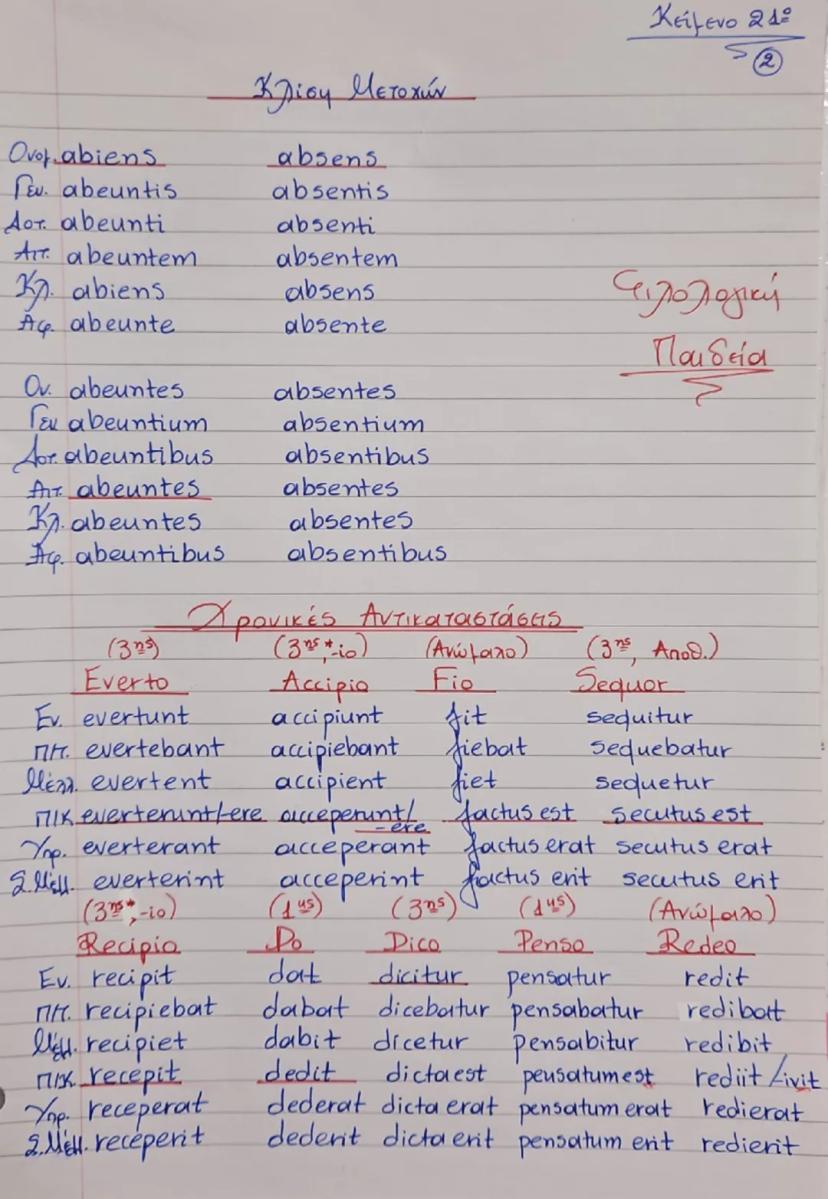 Κείμενο 21º
②
Κλίση Μετοχών
Ονομ. abiens absens
Γεν. abeuntis absentis
Δοτ. abeunti absenti
Αιτ. abeuntem absentem
Κλ. abiens absens
Αφ. abeunte absente
Φιλολογική
Παιδεία
Ον. abeuntes absentes
Γεν abeuntium absentium
Δοτ. abeuntibus absentibus
Αιτ. abeuntes absentes
Κλ. abeuntes absentes
Αφ. abeuntibus absentibus
Χρονικές Αντικαταστάσεις
(3ης) (3ης*,-io) (Ανώμαλο) (3ης, Αποθ.)
Everto Accipio Fio Sequor
Εν. evertunt accipiunt fit sequitur
ΠΠ. evertebant accipiebant fiebat sequebatur
Μέλλ. evertent accipient fiet sequetur
ΠΙΚ everterunt/-ere acceperunt/ factus est secutus est
-ere
Υπρ. everterant acceperant factus erat secutus erat
Σ.Μέλλ. everterint acceperint factus erit secutus erit
(3ης*,-io) (1ης) (3ης) (1ης) (Ανώμαλο)
Recipio Do Dico Penso Redeo
Εν. recipit dat dicitur pensatur redit
ΠΠ. recipiebat dabat dicebatur pensabatur redibat
Μέλλ. recipiet dabit dicetur pensabitur redibit
ΠΙΚ recepit dedit dicta est pensatum est rediit /-ivit
Υπρ. receperat dederat dicta erat pensatum erat redierat
Σ.Μέλλ. receperit dederit dicta erit pensatum erit redierit